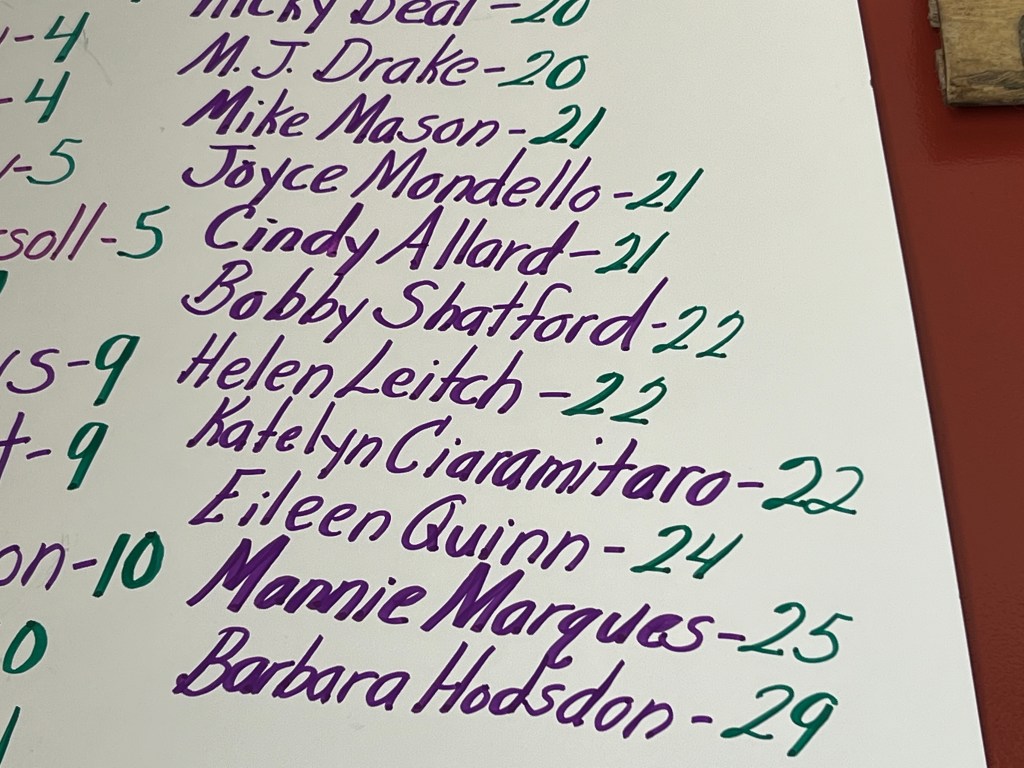 -4
-4
-5
soll-5
s-9
t-9
on-10
0
Deal-20
M.J. Drake-20
Mike Mason-21
Joyce Mondello-21
Cindy Allard-21
Bobby Shatford-22
Helen Leitch-22
Katelyn Ciaramitaro-22
Eileen Quinn-24
Mannie Marques-25
Barbara Hodsdon-29